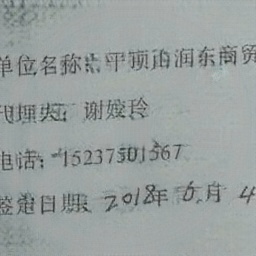 单位名称:平顶山润东商贸
代理人: 谢姣玲
电话: 15237501567
签定日期: 2018年 6.月 4